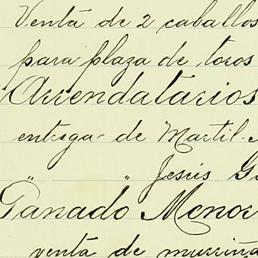 Venta de 2 caballos
para plaza de toros
Arrendatarios
entrega de Martil
" " Jesús G
Ganado Menor
venta de murriña